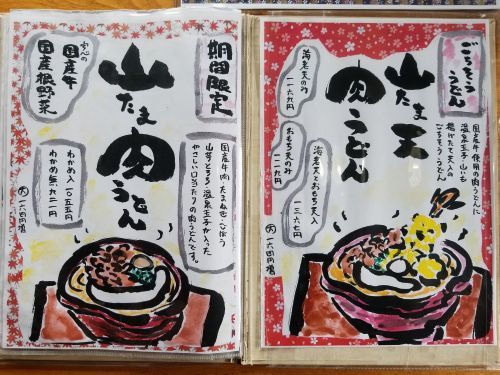 期間限定
山たま
肉うどん
安心の
国産牛
国産根野菜
国産牛肉、たまねぎ、ごぼう
山すりとろろ、温泉玉子が入った
やさしい口当たりの肉うどんです。
わかめ入 一〇五五円
わかめ無 九二一円
大 一六四円増
ごちそう
うどん
山たま天
肉うどん
国産牛使用の肉うどんに
温泉玉子、山いも
揚げたて天入の
ごちそううどん
海老天のみ
一一六九円
おもち天のみ
一一二九円
海老天とおもち天入
一三六七円
大 一六四円増